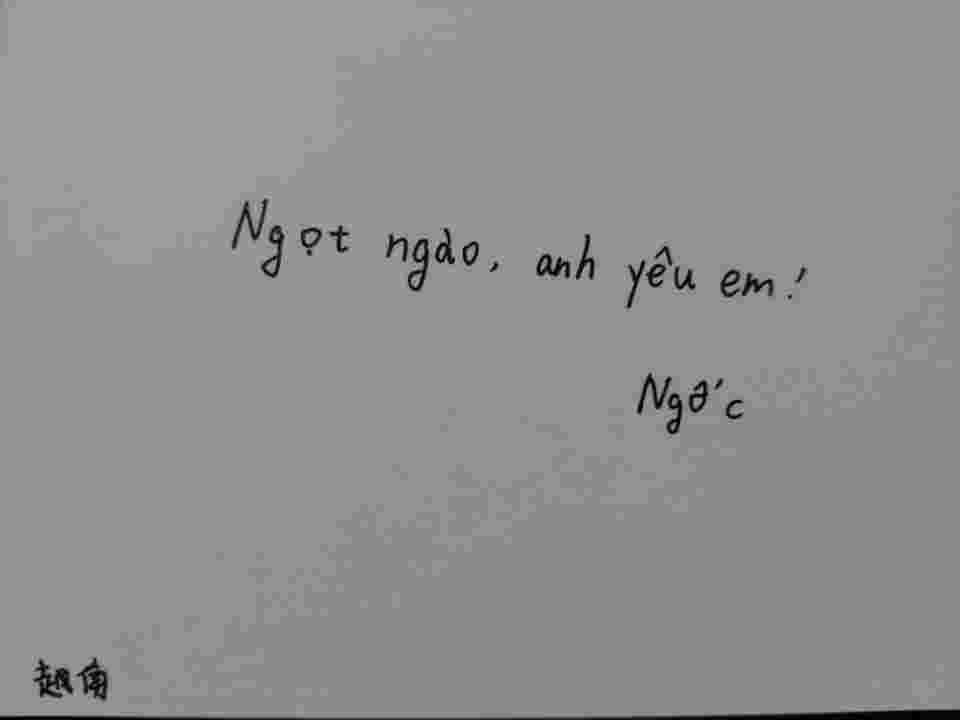 Ngọt ngào, anh yêu em!
Ngốc